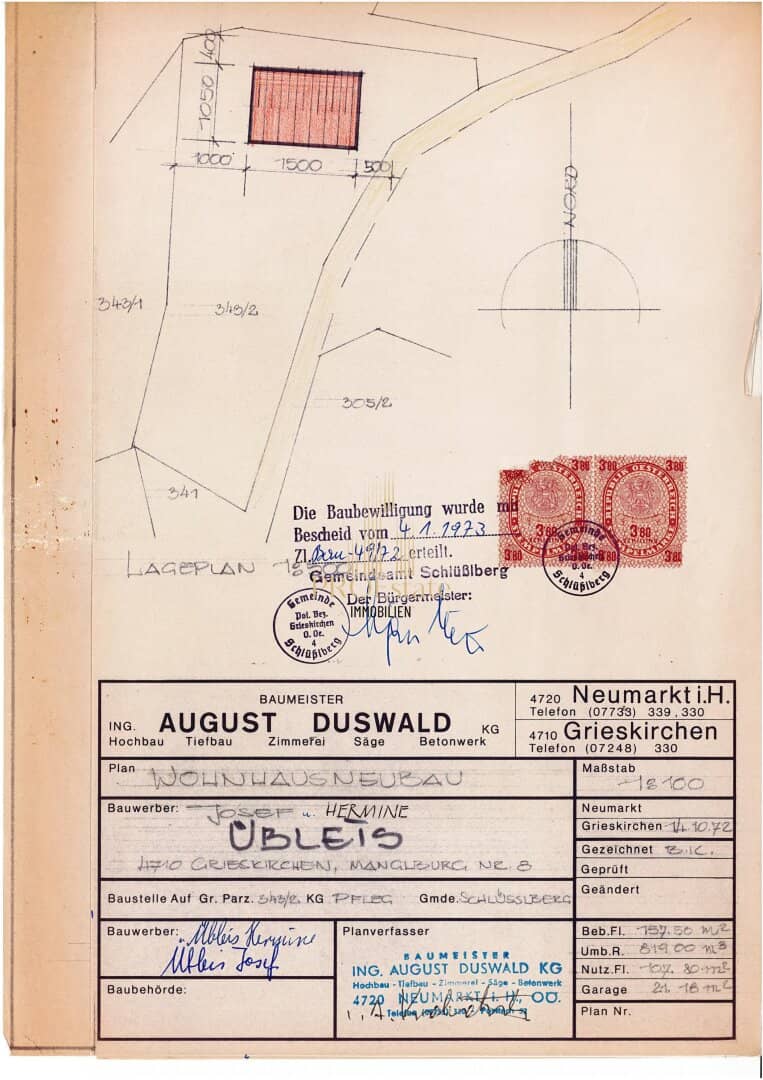 400
1050
1000 1500 500
NORD
343/1
343/2
305/2
341
3 80 REPUBLIK OESTERREICH 3 80
3 80 3 80
3 80 3 80
Die Baubewilligung wurde mit
Bescheid vom 4.1.1973
Zl. Bau-49/72 erteilt.
LAGEPLAN 1:500
Gemeindeamt Schlüßlberg
Der Bürgermeister:
IMMOBILIEN
Gemeinde
Pol. Bez.
Grieskirchen
O. Oe.
4
Schlüßlberg
Gemeinde
Pol. Bez.
Grieskirchen
O. Oe.
4
Schlüßlberg
BAUMEISTER
ING. AUGUST DUSWALD KG
Hochbau Tiefbau Zimmerei Säge Betonwerk
4720 Neumarkt i.H.
Telefon (07733) 339, 330
4710 Grieskirchen
Telefon (07248) 330
Plan WOHNHAUSNEUBAU
Maßstab
1:100
Bauwerber: JOSEF u. HERMINE
ÜBLEIS
4710 GRIESKIRCHEN, MANGLBURG NR. 8
Neumarkt
Grieskirchen 14.10.72
Gezeichnet B.K.
Geprüft
Geändert
Baustelle Auf Gr. Parz. 343/2 KG PFLEG Gmde. SCHLÜSSLBERG
Bauwerber: Übleis Hermine
Übleis Josef
Baubehörde:
Planverfasser
BAUMEISTER
ING. AUGUST DUSWALD KG
Hochbau - Tiefbau - Zimmerei - Säge - Betonwerk
4720 NEUMARKT i. H., OÖ.
Beb.Fl. 157.50 m²
Umb.R. 819.00 m³
Nutz.Fl. 107.80 m²
Garage 21.18 m²
Plan Nr.